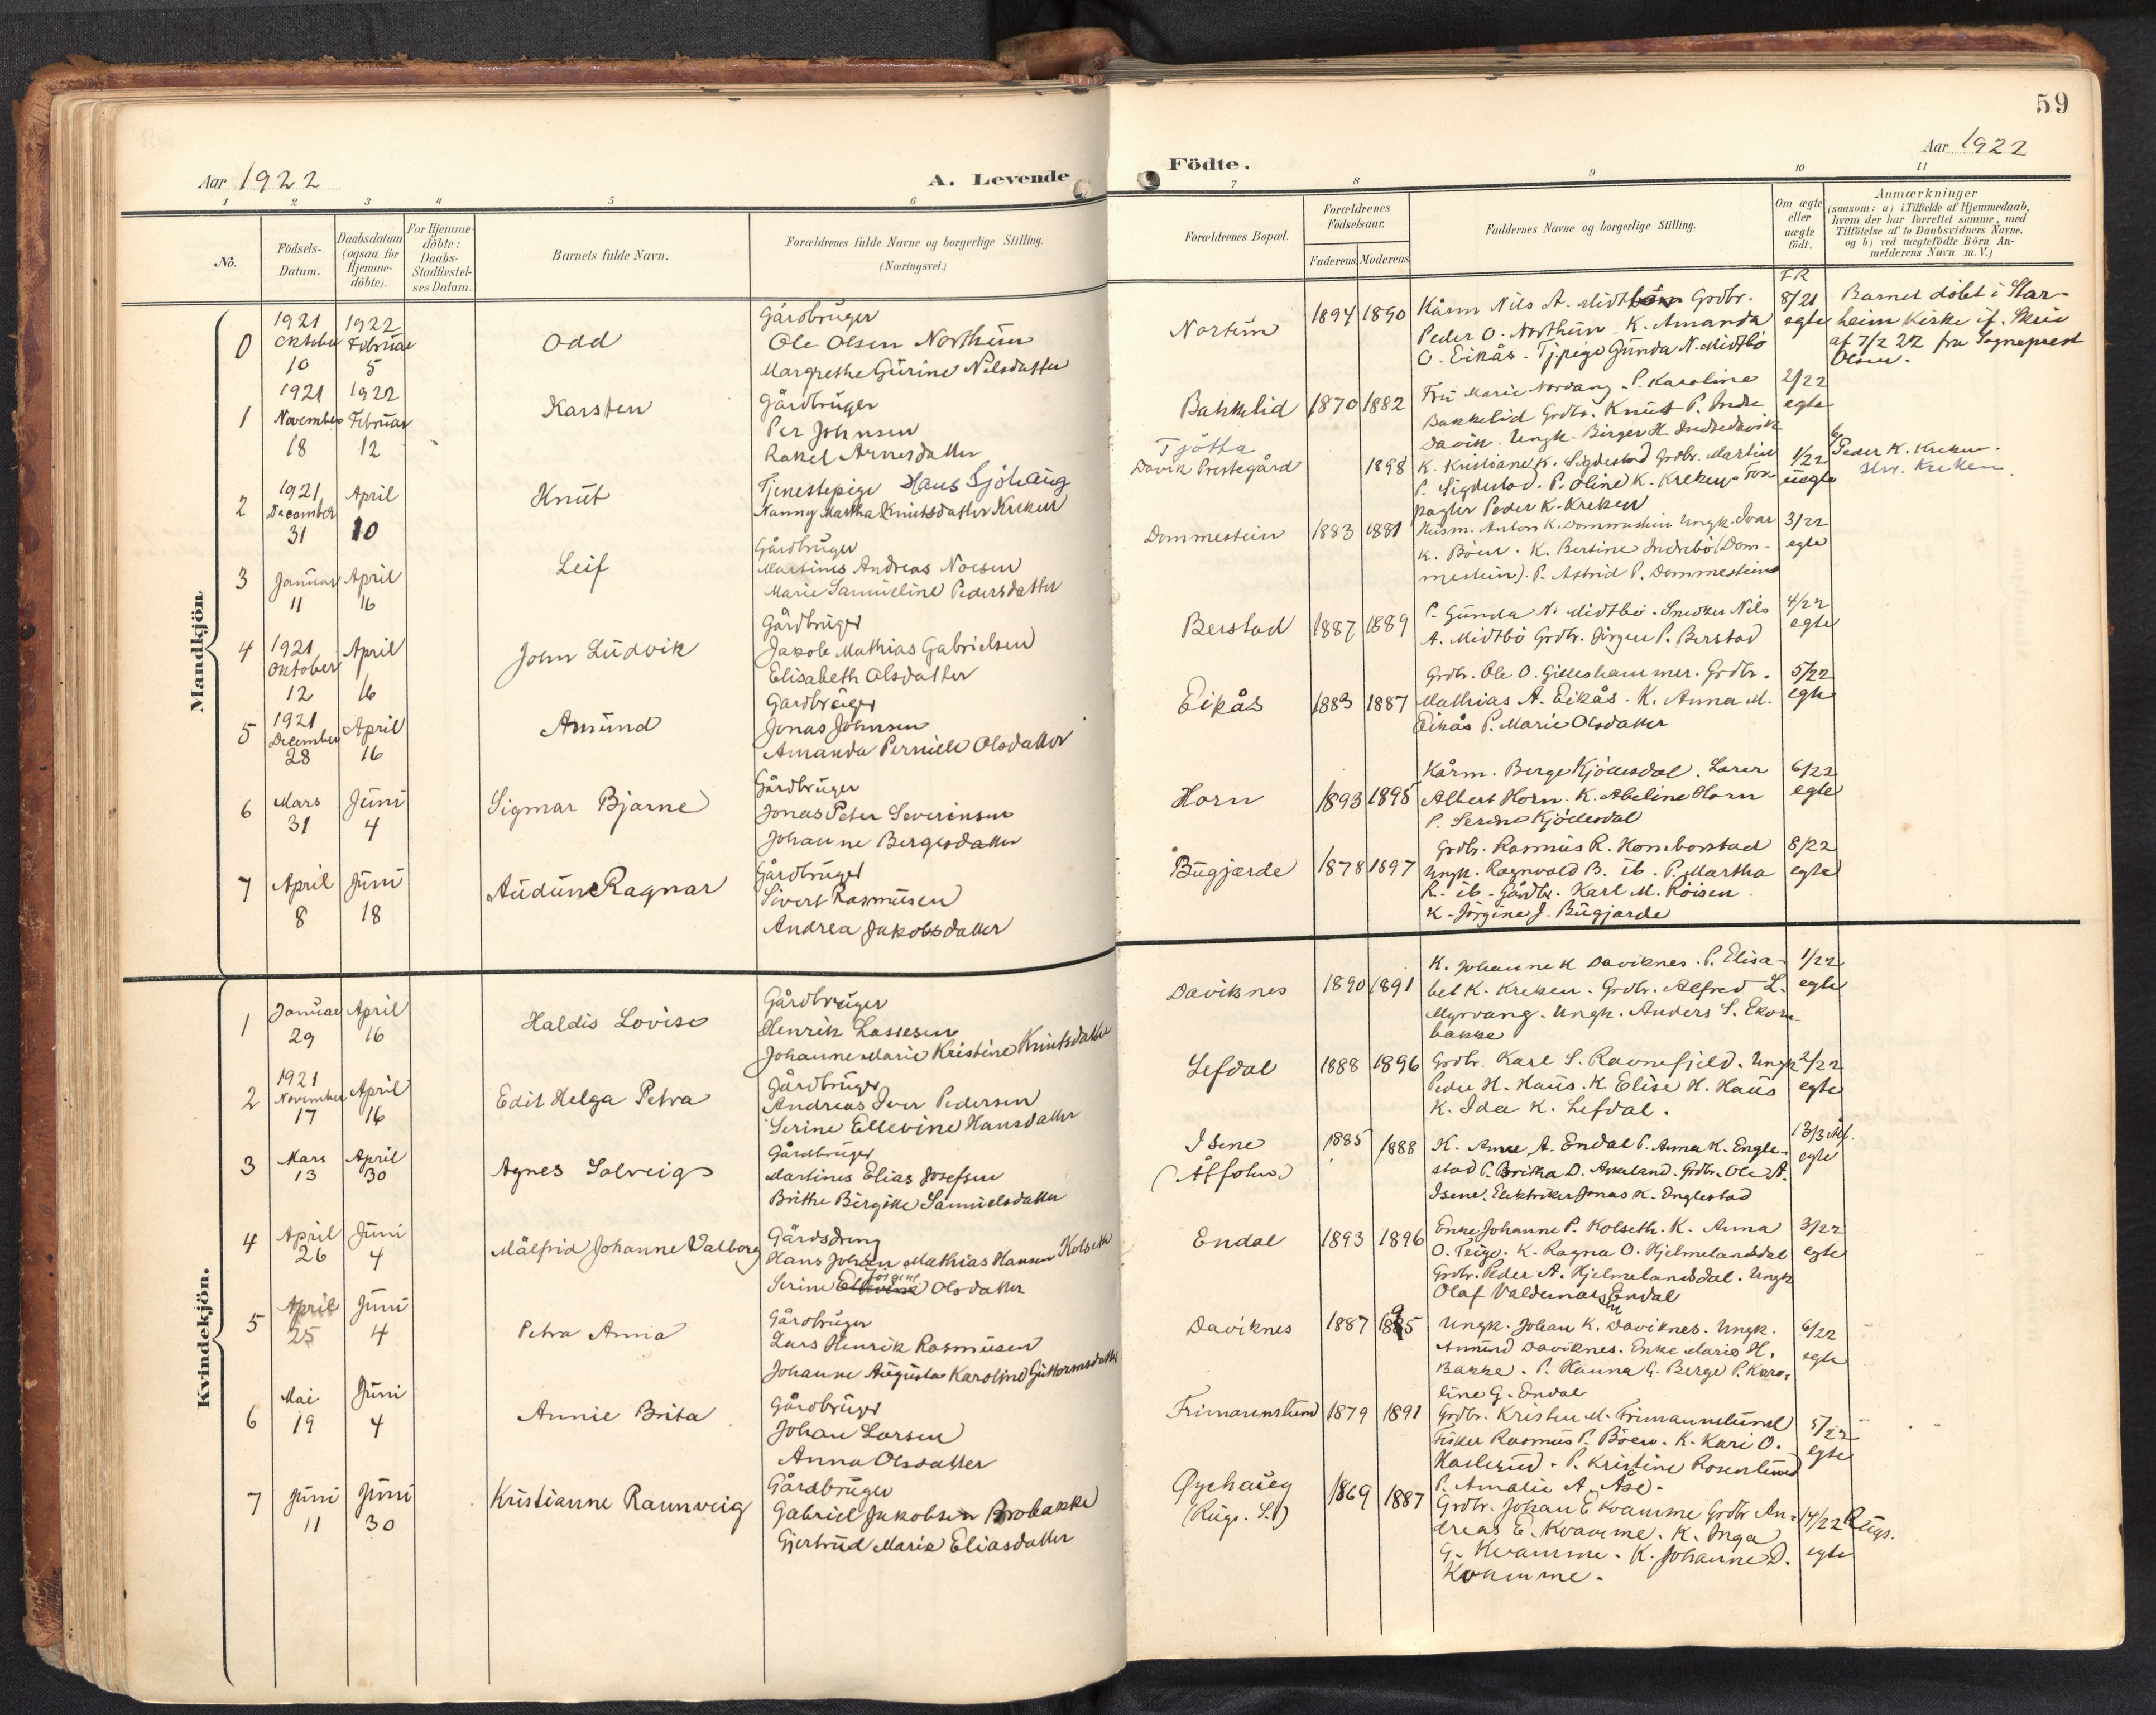 59
Aar 1922
A. Levende
Födte.
Aar 1922
1 2 3 4 5 6
7 8 9 10 11
No.
Födsels-
Datum.
Daabsdatum
(ogsaa for
Hjemme-
döbte).
For Hjemme-
döbte:
Daabs-
Stadfæstel-
ses Datum.
Barnets fulde Navn.
Forældrenes fulde Navne og borgerlige Stilling.
(Næringsvei.)
Forældrenes Bopæl.
Forældrenes
Födselsaar.
Faderens
Moderens
Faddernes Navne og borgerlige Stilling.
Om ægte
eller
uægte
födt.
Anmærkninger
(saasom: a) i Tilfælde af Hjemmedaab,
hvem der har forrettet samme, med
Tilföielse af to Daabsvidners Navne.
og b) ved uægtefödte Börn An-
melderens Navn m. V.)
Mandkjön
0
1921
Oktober
10
1922
Februar
5
Odd
Gårdbruger
Ole Olsen Northün
Margrethe Gürine Nilsdatter
Nortün
1894 1890
Kårm Nils A. Midtbö Grdbr.
Peder O. Northün K. Amanda
O. Eikås. Tj.pige Günda N. Midtbö
I R
8/21
egte
Barnet döbt i Star-
heim Kirke if. Skriv
af 7/2 22 fra Sogneprest
Olsen.
1
1921
November
18
1922
Februar
12
Karsten
Gårdbruger
Per Johnsen
Rakel Arnesdatter
Bakkelid
1870 1882
Fru Marie Nordang. P. Karoline
Bakkelid Grdbr. Knut P. Indre
Davik. Ungk. Birger H. Indredavik
2/22
egte
2
1921
December
31
April
10
Knut
Tjenestepige Hans Sjöhaug
Nanny Martha Knutsdatter Kreken
Tjötta
Davik Prestegård
1898
K. Kristiane K. Sigdestad Grdbr. Martin
P. Sigdestad. P. Oline K. Kreken For-
pagter Peder K. Kreken
1/22
uegte
Peder K. Kreken.
skr. Kreken
3
Januar
11
April
16
Leif
Gårdbruger
Martinus Andreas Noesen
Marie Samueline Pedersdatter
Dommestein
1883 1881
Husm. Anton K. Dommestein Ungk. Ivar
K. Böen. K. Bertine Indrebö (Dom-
mestein). P. Astrid P. Dommestein
3/22
egte
4
1921
Oktober
12
April
16
John Ludvik
Gårdbruger
Jakob Mathias Gabrielsen
Elisabeth Olsdatter
Berstad
1887 1889
P. Günda N. Midtbö. Snedker Nils
A. Midtbö Grdbr. Jörgen P. Berstad
4/22
egte
5
1921
December
28
April
16
Amund
Gårdbruger
Jonas Johnsen
Amanda Pernille Olsdatter
Eikås
1883 1887
Grdbr. Ole O. Gilleshammer. Grdbr.
Mathias A. Eikås. K. Anna M.
Eikås P. Marie Olsdatter
5/22
egte
6
Mars
31
Juni
4
Sigmar Bjarne
Gårdbruger
Jonas Peter Severinsen
Johanne Bergesdatter
Horn
1893 1895
Kårm. Berge Kjöllesdal. Lærer
Albert Horn. K. Abeline Horn
P. Serine Kjöllesdal
6/22
egte
7
April
8
Juni
18
Audun Ragnar
Gårdbruger
Sivert Rasmusen
Andrea Jakobsdatter
Bügjærde
1878 1897
Grdbr. Rasmus R. Homborstad
Ungk. Ragnvald B. ib. P. Martha
R. ib. Gårdbr. Karl M. Röisen
K. Jörgine J. Bügjærde
8/22
egte
Kvindekjön.
1
Januar
29
April
16
Haldis Lovise
Gårdbruger
Henrik Lassesen
Johanne Marie Kristine Knutsdatter
Daviknes
1890 1891
K. Johanne K Daviknes. P. Elisa-
bet K. Kreken. Grdbr. Alfred L.
Myrvang. Ungk. Anders S. Ekorn-
bakke
1/22
egte
2
1921
November
17
April
16
Edit Helga Petra
Gårdbruger
Andreas Iver Pedersen
Serine Ellevine Hansdatter
Lefdal
1888 1896
Grdbr. Karl S. Ravnefjeld. Ungk
Peder H. Haus. K. Elise H. Haus
K. Ida K. Lefdal.
2/22
egte
3
Mars
13
April
30
Agnes Solveig
Gårdbruger
Martinus Elias Josefsen
Brithe Birgitte Samuelsdatter
Isene
(Ålfoten)
1885 1888
K. Anne A. Endal P. Anna K. Engle-
stad P. Brita D. Askeland. Grdbr. Ole A.
Isene. Elektriker Jonas K. Englestad
13/3 Ålf.
egte
4
April
26
Juni
4
Målfrid Johanne Valborg
Gårdsdreng
Hans Johan Mathias Hansen Kolseth
Serine Ellevine Jörgine Olsdatter
Endal
1893 1896
Enke Johanne P. Kolseth. K. Anna
O. Teige. K. Ragna O. Hjelmelandsdal
Grdbr. Peder A. Hjelmelandsdal. Ungk
Olaf Valdemarsen Endal
3/22
egte
5
April
25
Juni
4
Petra Anna
Gårdbruger
Lars Henrik Rasmusen
Johanne Augusta Karoline Guttormsdatter
Daviknes
1887 1895
Ungk. Johan K. Daviknes. Ungk.
Amund Daviknes. Enke Marie H.
Bakke. P. Hanna G. Berge P. Karo-
line G. Endal
6/22
egte
6
Mai
19
Juni
4
Annie Brita
Gårdbruger
Johan Larsen
Anna Olsdatter
Frimannslund
1879 1891
Grdbr. Kristen M. Frimannslund
Fisker Rasmus P. Böen. K. Kari O.
Haslerud. P. Kristine Rosenlund
P. Amalie A. Åse.
5/22
egte
7
Juni
11
Juni
30
Kristianne Raunveig
Gårdbruger
Gabriel Jakobsen Brobakke
Gjertrud Marie Eliasdatter
Öyehaug
(Rugs. S.)
1869 1887
Grdbr. Johan E Kvamme Grdbr An-
dreas E. Kvamme. K. Inga
G. Kvamme. K. Johanne D.
Kvamme.
14/22 Rugs.
egte